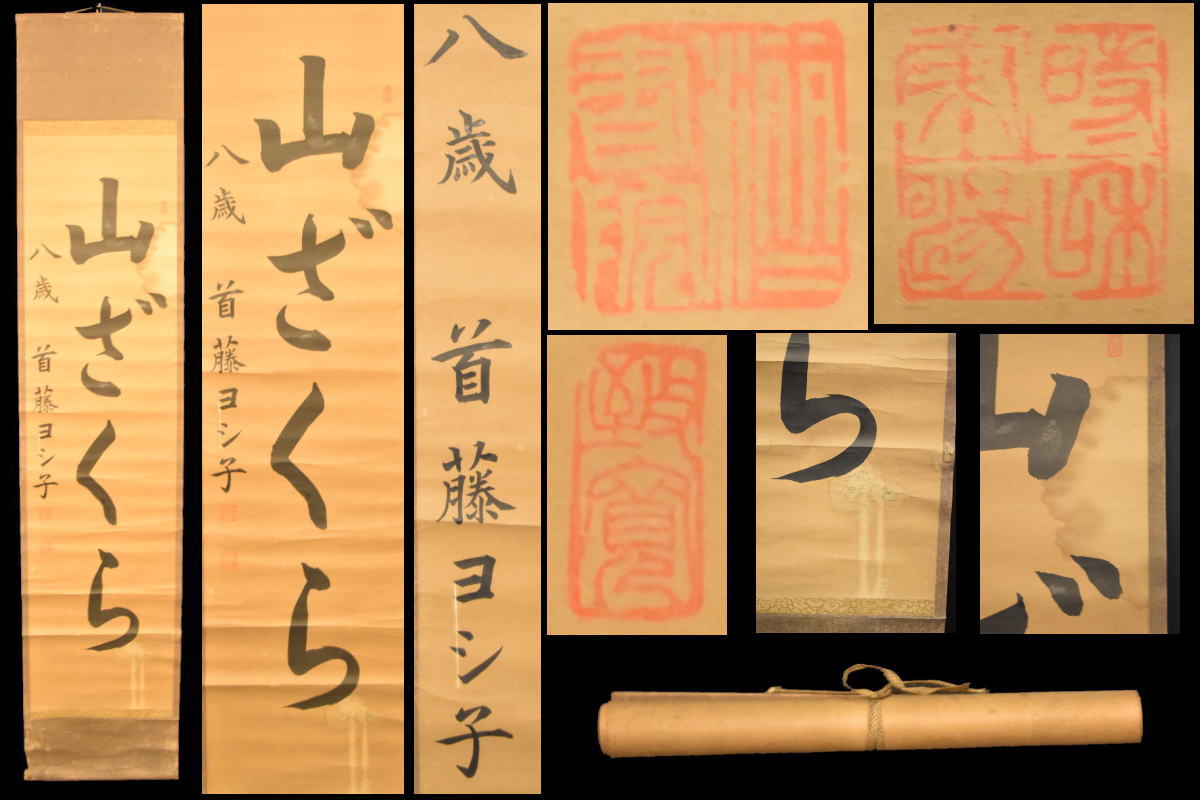 山ざくら
八歳 首藤ヨシ子
山ざくら
八歳 首藤ヨシ子
八歳 首藤ヨシ子
ら
山